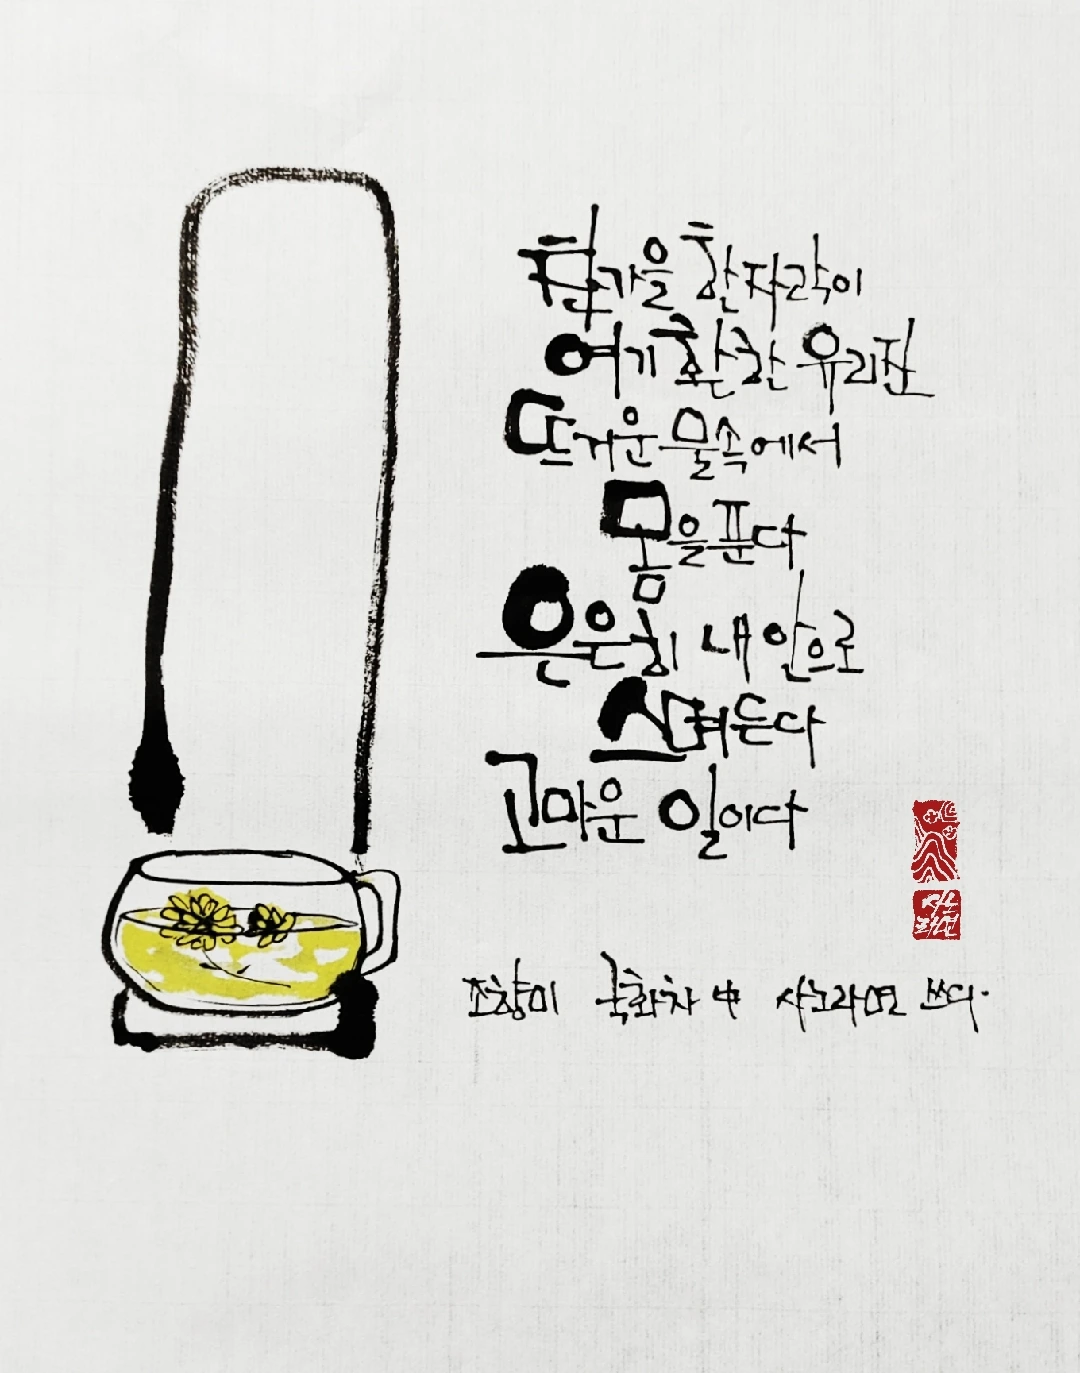 찬 가을 한 자락이
여기 환한 유리잔
뜨거운 물 속에서
몸을 푼다
은은히 내 안으로
스며든다
고마운 일이다
조향미 국화차 中 사노라면 쓰다.
사노
라면